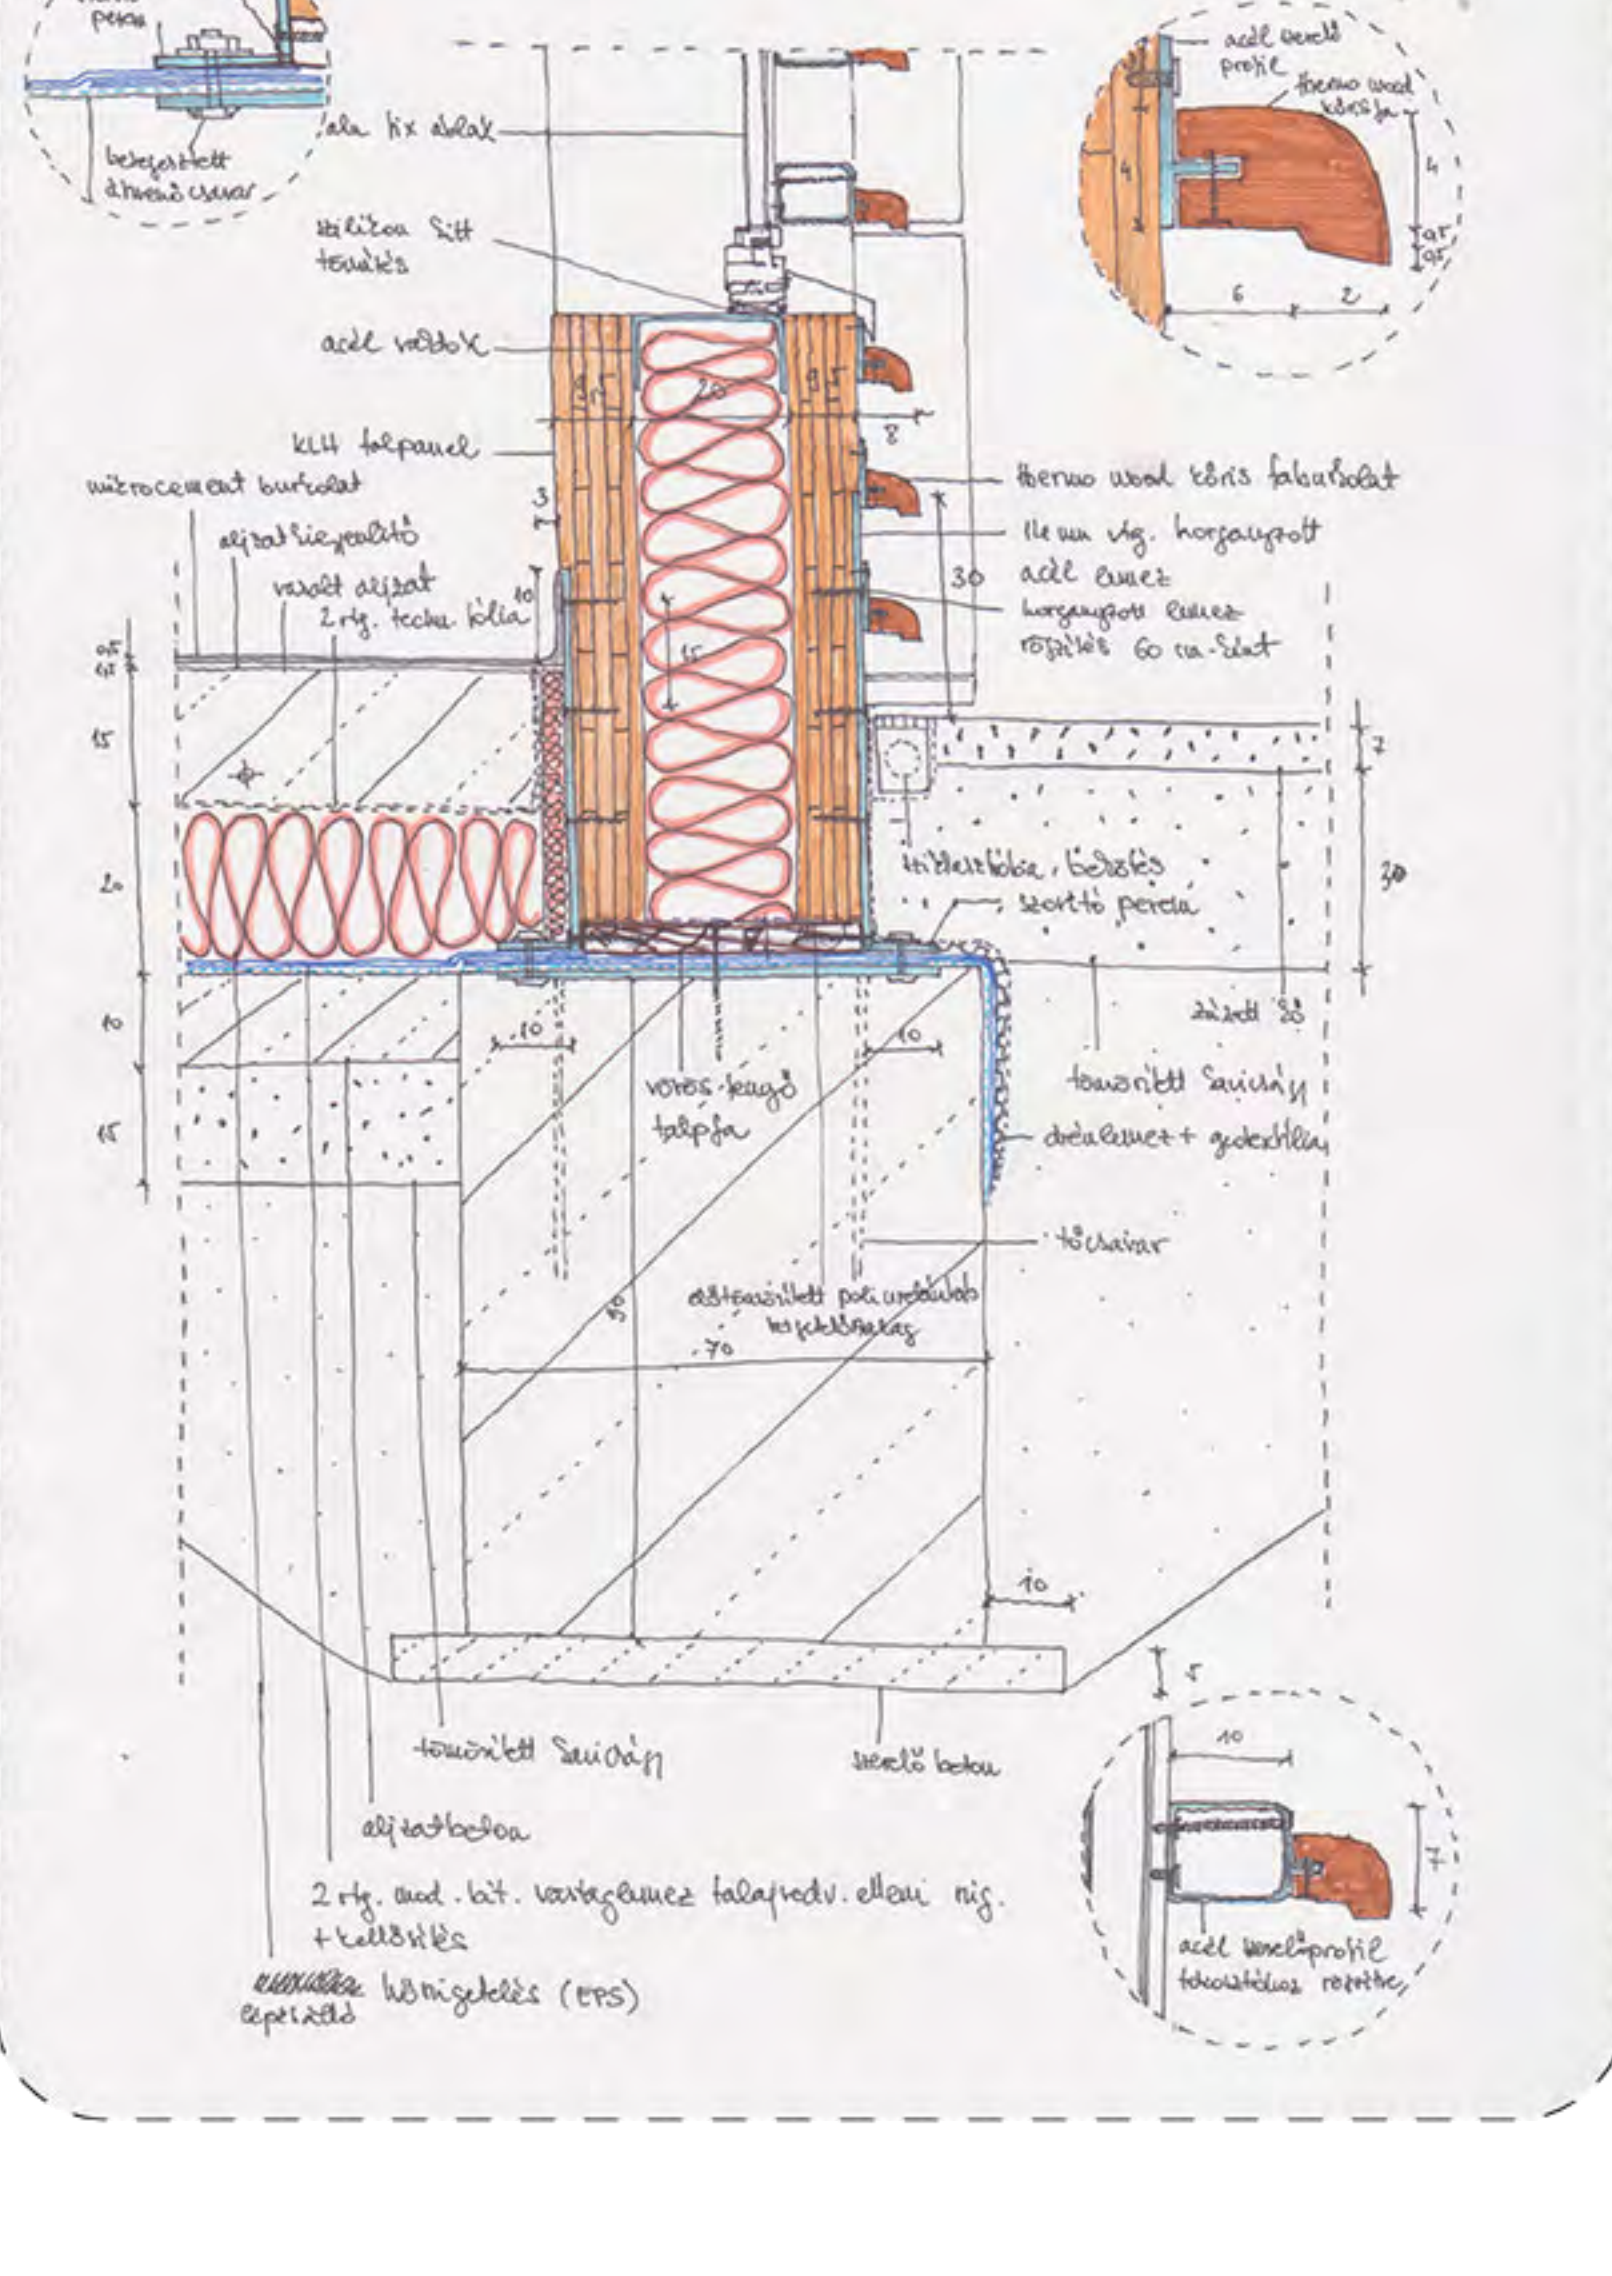 perem
beragasztott
átmenő csavar
alu fix ablak
szilikon kitt
tömítés
acél váztok
KLH falpanel
microcement burkolat
aljzatkiegyenlítő
vasalt aljzat
2 rtg. techn. fólia
acél szerelő
profil
thermo wood
kőrisfa
4
4
0,5
0,5
6
2
20
8
3
10
30
15
thermo wood kőris faburkolat
vtg. horganyzott
acél lemez
horganyzott lemez
rögzítés 60 cm-ként
0,5
15
20
10
15
7
30
szorító perem
zúzott kő
tömörített kavicságy
drénlemez + geotextília
10
10
vörösfenyő
talpfa
tőcsavar
előtömörített poliuretánhab
90
70
10
5
tömörített kavicságy
szerelő beton
aljzatbeton
2 rtg. mod. bit. vastaglemez talajnedv. elleni szig.
+ kellősítés
hőszigetelés (EPS)
lépésálló
10
7
acél szerelőprofil
tokosztóhoz rögzítve